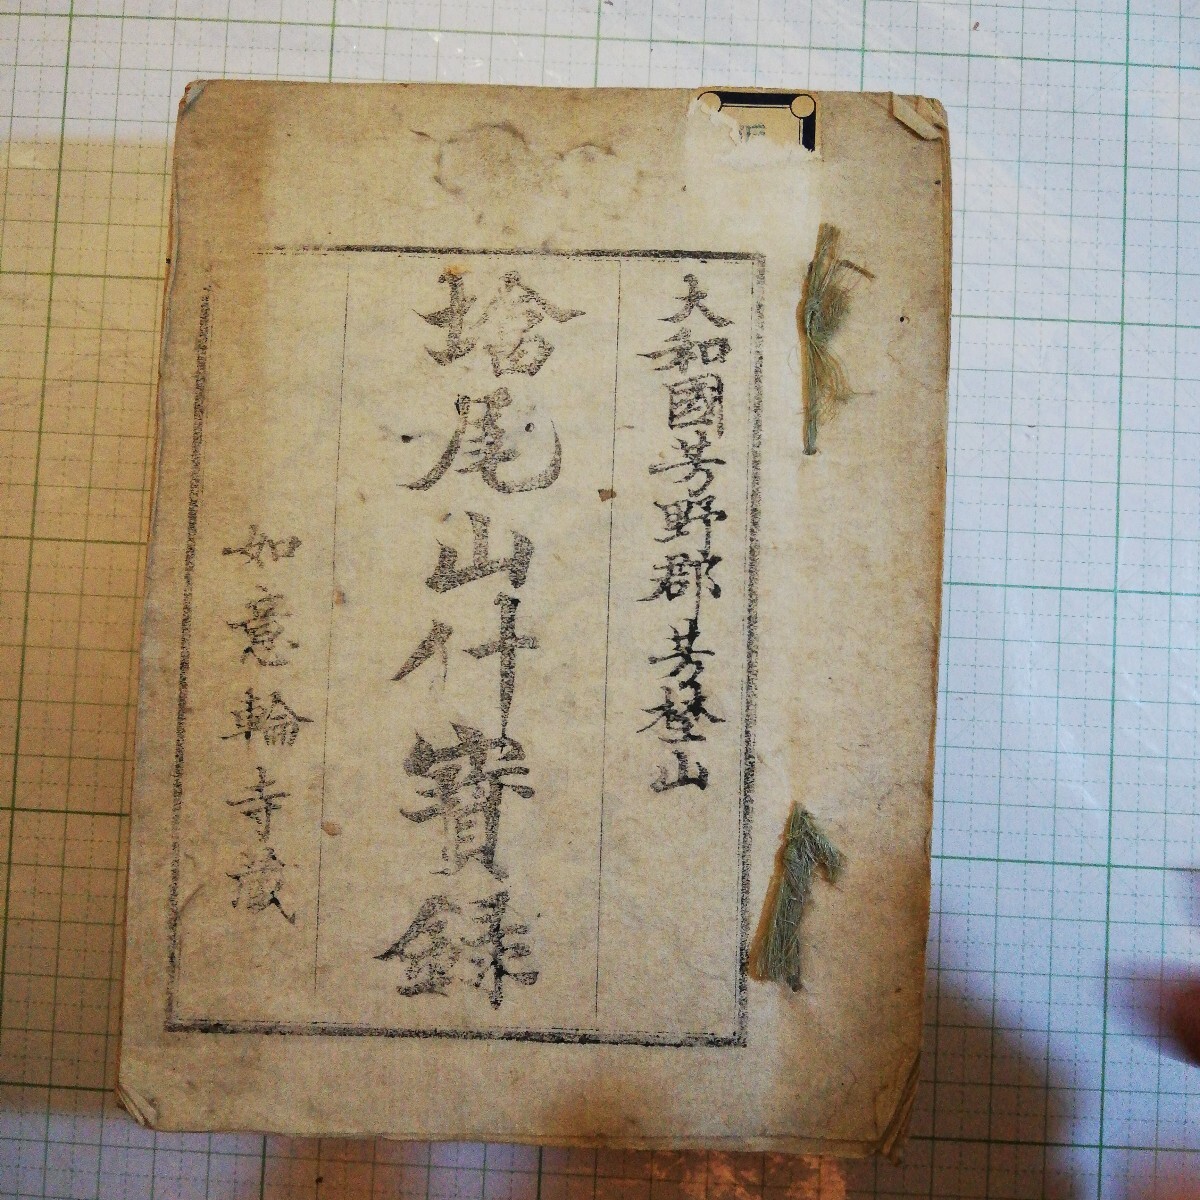 大和國芳野郡芳埜山
墖尾山什寳録
如意輪寺藏